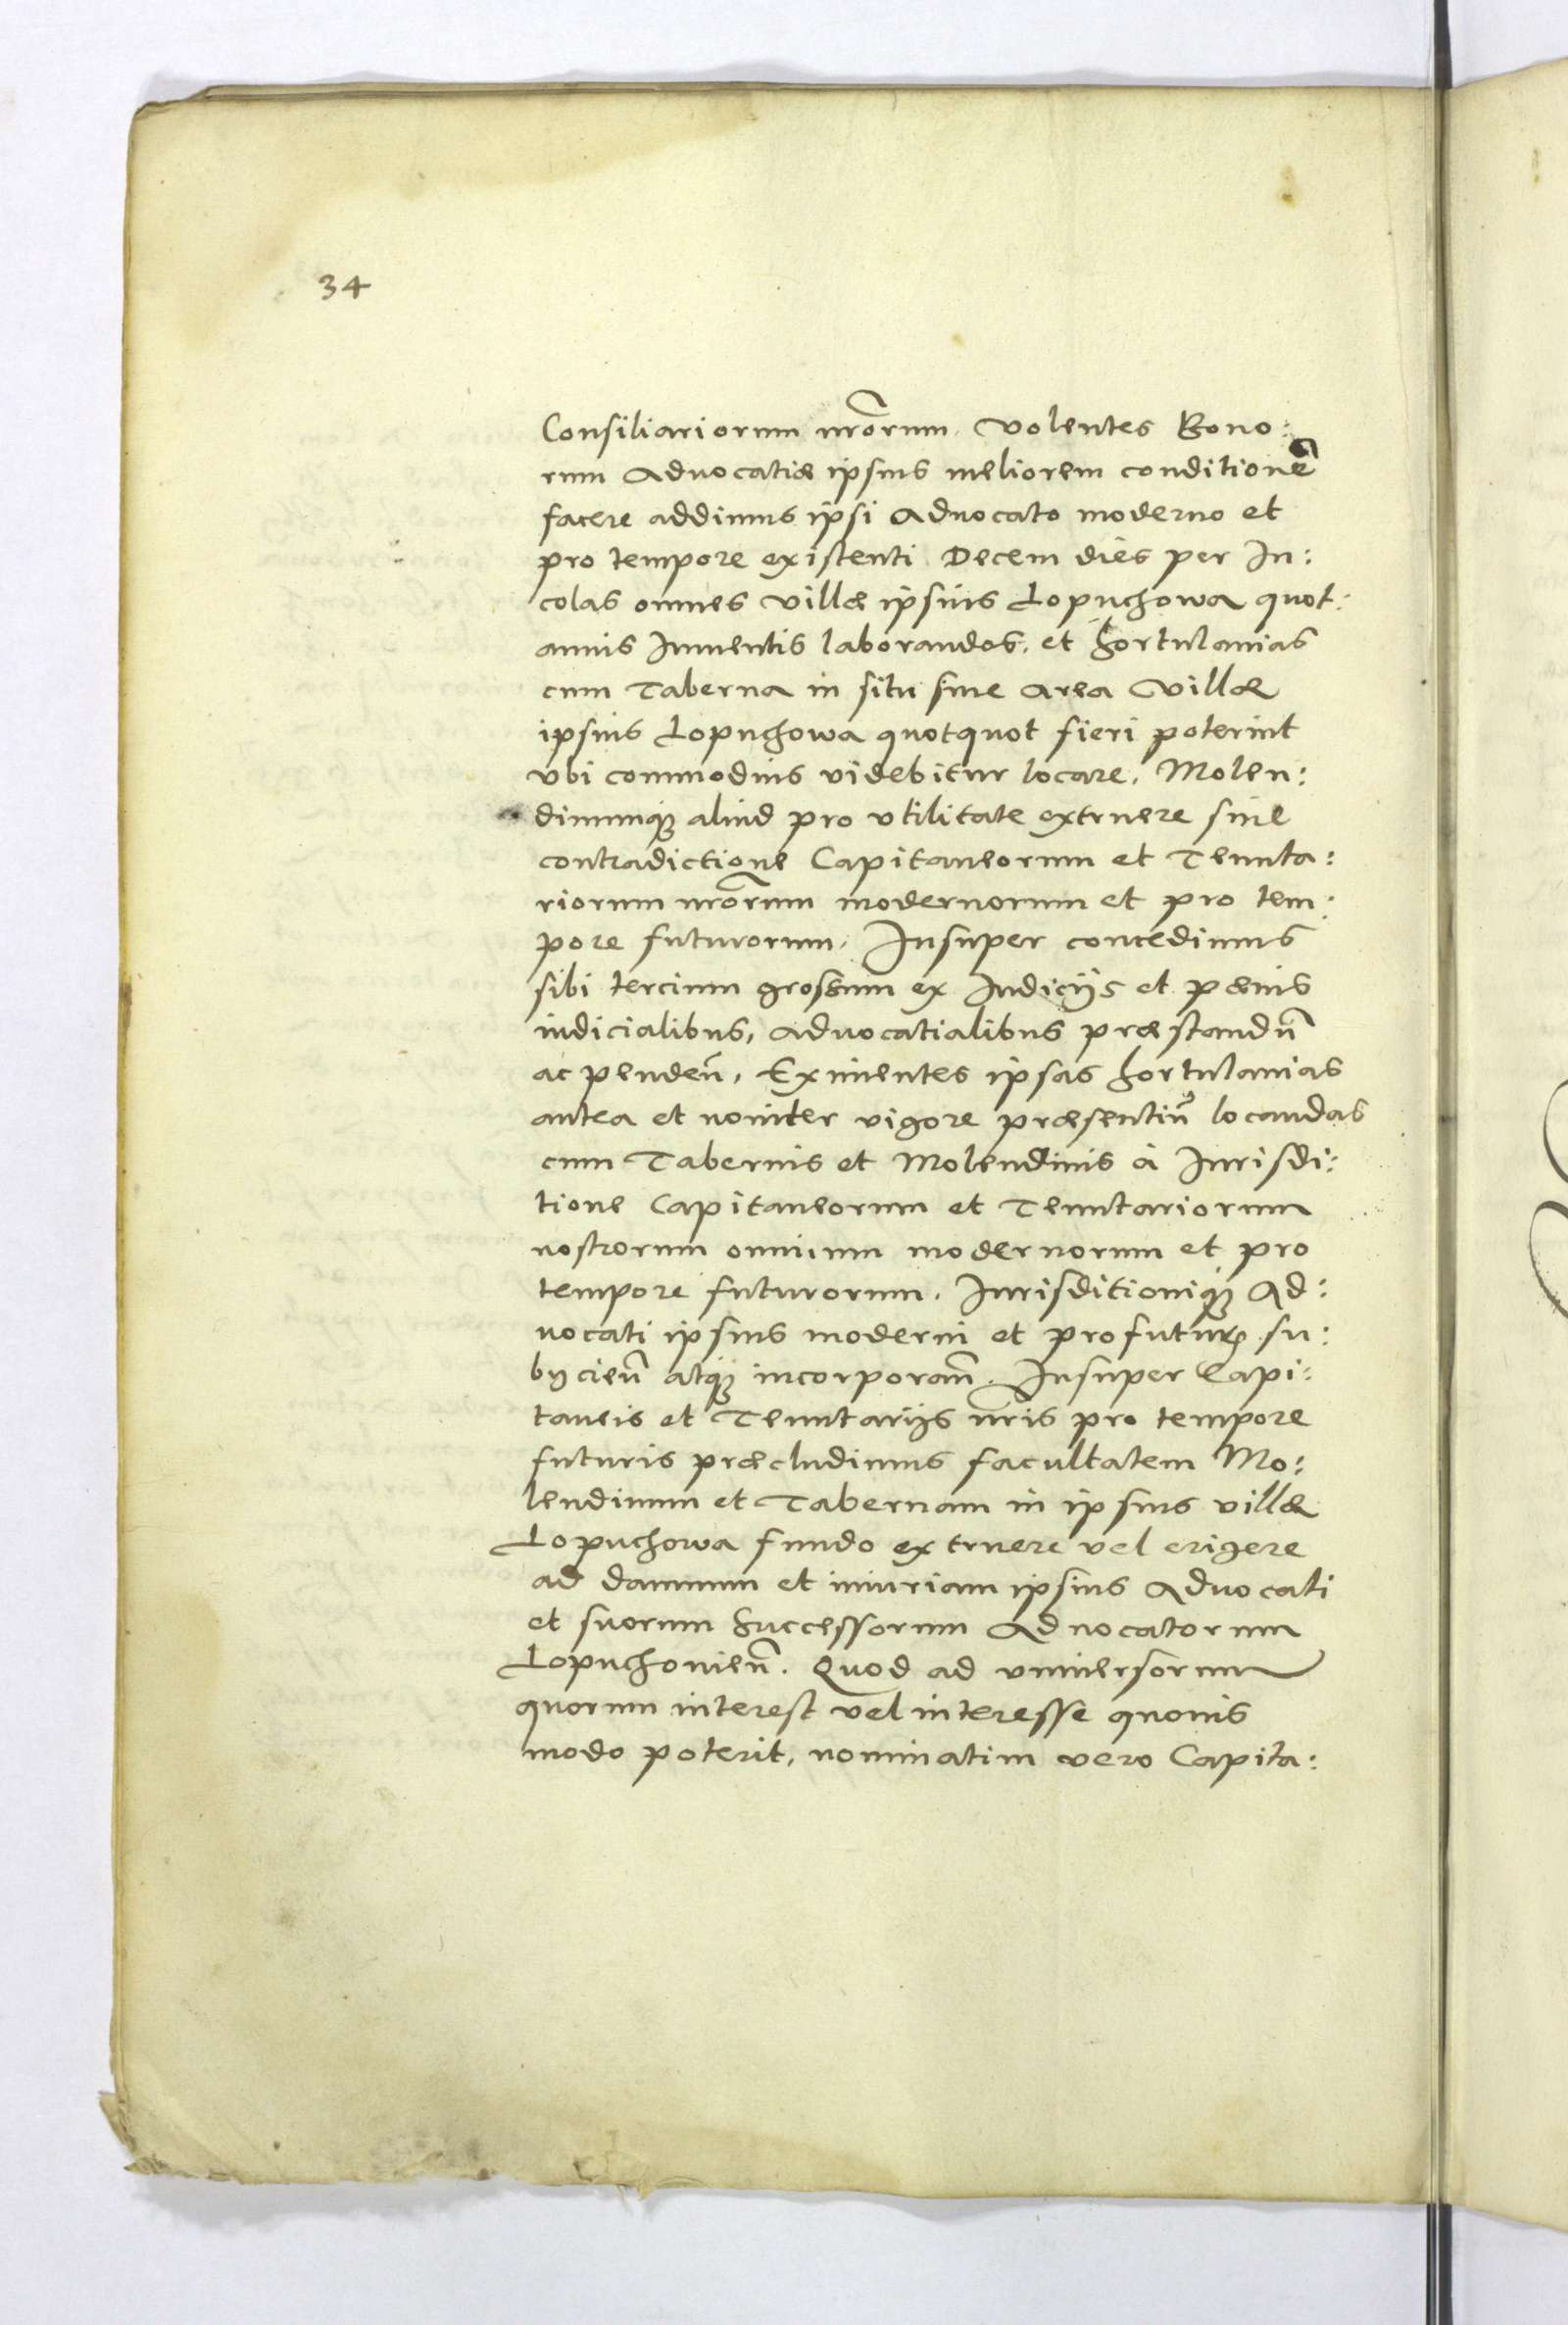 34
Consiliariorum nr̃orum. Volentes Bono:
rum Advocatiæ ipsius meliorem conditionẽ
facere addimus ipsi Advocato moderno et
pro tempore existenti Decem dies per In:
colas omnes villæ ipsius Lopuchowa quot:
annis Iumentis laborandos. et hortulanias
cum Taberna in situ siue Area Villæ
ipsius Lopuchowa quotquot fieri poterint
vbi commodius videbitur locare. Molen:
dinumq́ aliud pro vtilitate extruere sine
contradictione Capitaneorum et Tenuta:
riorum nr̃orum modernorum et pro tem:
pore futurorum. Insuper concedimus
sibi tercium grossum ex Iudicijs et pænis
iudicialibus, aduocatialibus præstandũ
ac pendeñ. Eximentes ipsas hortulanias
antea et nouiter vigore præsentiũ locandas
cum Tabernis et Molendinis à Iurisdi:
tione Capitaneorum et Tenutariorum
nostrorum omnium modernorum et pro
tempore futurorum. Iurisditioniq́ Ad:
uocati ipsius moderni et pro futuroꝝ su:
bijcieñ atq́ incorporañ. Insuper Capi:
taneis et Tenutarijs nr̃is pro tempore
futuris præcludimus facultatem Mo:
lendinum et Tabernam in ipsius villæ
Lopuchowa fundo extruere vel erigere
ad damnum et iniuriam ipsius Advocati
et suorum Successorum Aduocatorum
Lopuchouieñ. Quod ad vniuersorum
quorum interest vel interesse quouis
modo poterit, nominatim vero Capita: